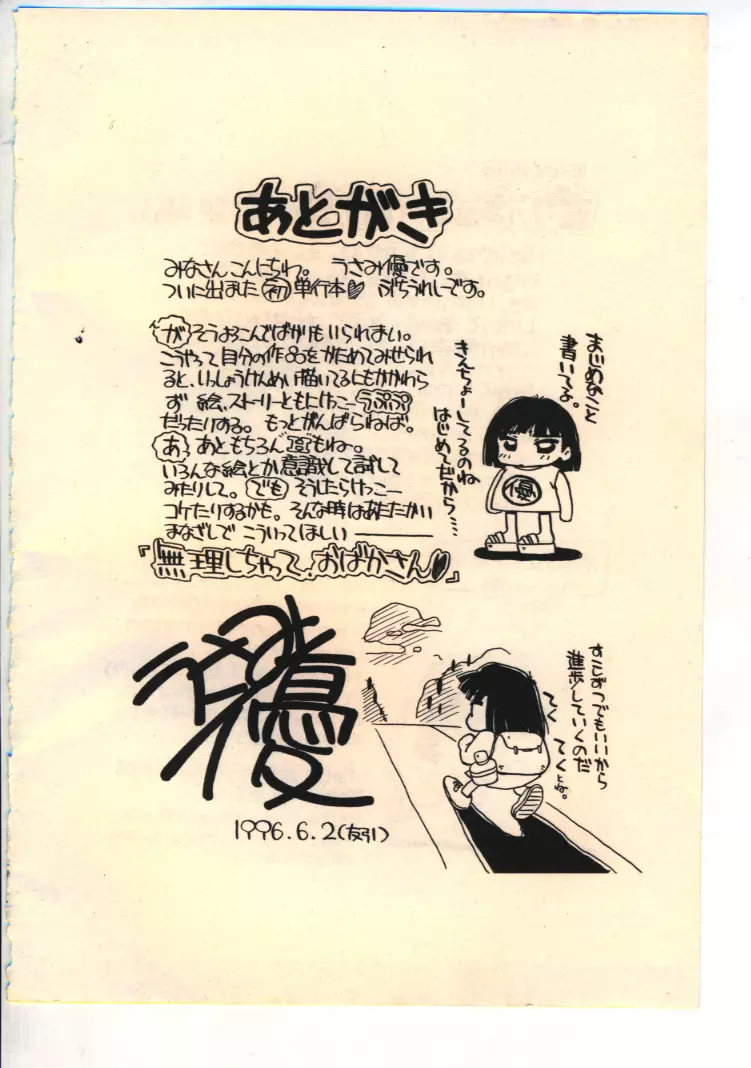 あとがき
みなさんこんにちわ。 うさみ優です。
ついに出ました 初 単行本♡ ぷちうれしーです。
が そうよろこんでばかりもいられまい。
こうやって自分の作品をかためてみせられ
ると、いっしょうけんめい描いてるにもかかわら
ず 絵、ストーリーともにけっこーうぷぷ
だったりする。 もっとがんばらねば。
あ、あともちろん 頭 もね。
いろんな絵とか意識して試して
みたりして。でも そうしたらけっこー
コケたりするかも。そんな時はあたたかい
まなざしで こういってほしい ―
『無理しちゃって、おばかさん♡』
まじめなこと
書いてるよ。
きんちょーしてるのね
はじめてだから……
優
うさみ優
1996.6.2(友引)
すこしずつでもいいから
進歩していくのだ
てく
てくよす。